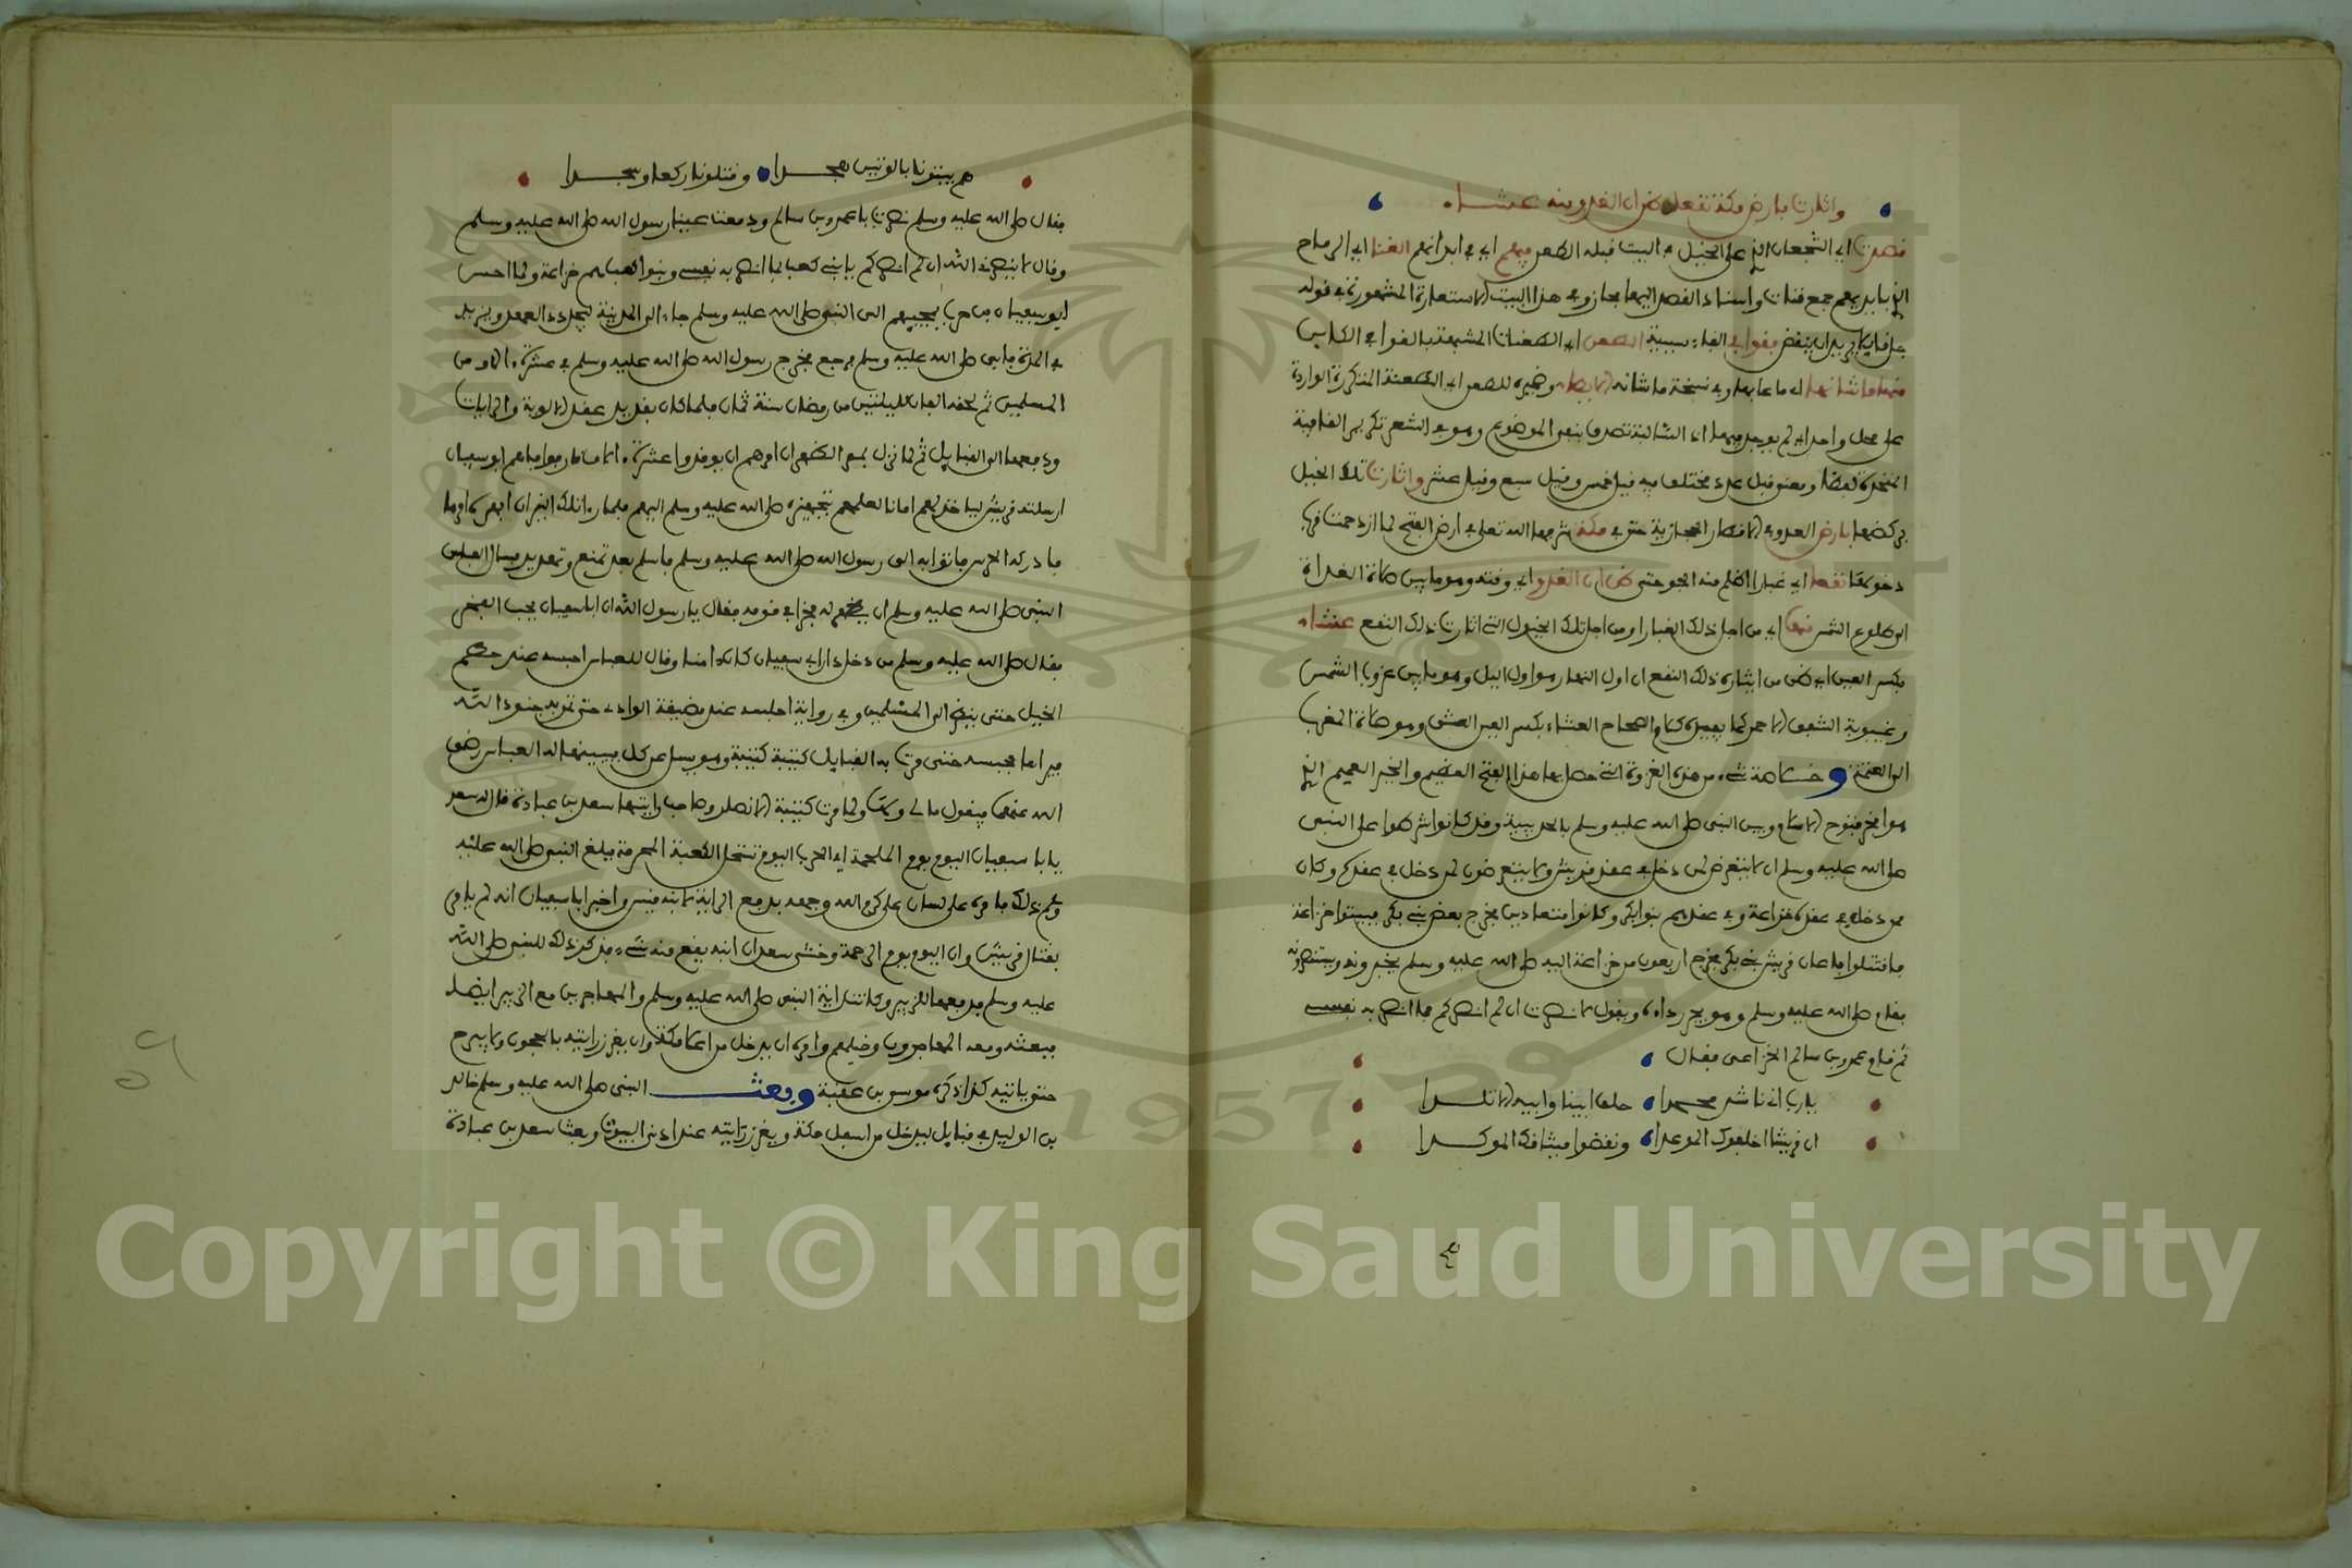 واثارت بارض مكة نقعا ظن ان الغدو منه عشاء
قصدت اي الشجعان الذين على الخيل في البيت قبله الطعن فيهم اي في ابدانهم القنا اي الرماح
التي بايديهم جمع قنات واسناد القصد اليها مجاز وفي هذا البيت الاستعارة المشهورة في قوله
يريد ان ينقض فقوافي الفاء سببية الطعن اي الطعنات المشبهة بالقوافي
منها ما شانها اي ما عابها وفي نسخة ما شانه الايطاء وضميره للطعن اي الطعنة المتكررة الواردة
على محل واحد اي لم يوجد فيها اذ السالبة تصدق بنفي الموضوع وهو في الشعر تكرير القافية
المتحدة لفظا ومعنى قبل عدد مختلف فيه قيل خمس وقيل سبع وقيل عشر واثارت تلك الخيل
بركضها بارض العدو في الاقطار الحجازية حتى في مكة شرفها الله تعلى في ارض الفتح لما ازدحمت
نقعا اي غبارا اظلم منه الجو حتى ظن ان الغدو اي وقته وهو ما بين صلاة الغداة
الى طلوع الشمس منها اي من اجل ذلك الغبار او من اجل تلك الخيول التي اثارت ذلك النقع عشاء
بكسر العين اي ظن من ايثاره ذلك النقع ان اول النهار هو اول اليل وهو ما بين غروب الشمس
وغيبوبة الشفق الاحمر كما يفيده كلام الصحاح العشاء بكسر العين العشي وهو صلاة المغرب
الى العتمة وخلاصة شيء من هذه الغزوة التي حصل بها هذا الفتح العظيم والخير العميم الذي
هو افخر فتوح الاسلام وبين النبي صلى الله عليه وسلم بالحديبية وقد كانوا شرطوا على النبي
صلى الله عليه وسلم ان لا يتعرض لمن دخل في عقد قريش ولا يتعرضون لمن دخل في عقدكم وكان
ممن دخل في عقده خزاعة وفي عقدهم بنو بكر وكانوا متعادين فخرج بعض بني بكر فبيتوا خزاعة
فاقتتلوا فاعان قريش بني بكر فخرج اربعون من خزاعة اليه صلى الله عليه وسلم يخبرونه ويستنصرونه
فقام صلى الله عليه وسلم وهو يجر رداءه ويقول لا نصرت ان لم انصركم بما انصر به نفسي
ثم قام عمرو بن سالم الخزاعي فقال
يارب اني ناشد محمدا حلف ابينا وابيه الاتلدا
ان قريشا اخلفوك الموعدا ونقضوا ميثاقك الموكدا
هم بيتونا بالوتير هجدا وقتلونا ركعا وسجدا
فقال صلى الله عليه وسلم نصرت يا عمرو بن سالم ودمعت عينا رسول الله صلى الله عليه وسلم
وقال لا ينصرني الله ان لم انصركم يا بني كعب بما انصر به نفسي وبنو كعب هم خزاعة ولما احس
ابو سفيان بن حرب بمجيئهم الى النبي صلى الله عليه وسلم جاء الى المدينة ليجدد العهد ويزيد
في المدة فابى صلى الله عليه وسلم فرجع فخرج رسول الله صلى الله عليه وسلم في عشرة ءالاف من
المسلمين ثم لحقه الفان لليلتين من رمضان سنة ثمان فلما كان بقديد عقد الالوية والرايات
ودفعها الى القبايل ثم لما نزل بمر الظهران امرهم ان يوقدوا عشرة ءالاف نار فوافاهم ابو سفيان
ارسلته قريش لياخذ لهم امانا لعلمهم بتجهيزه صلى الله عليه وسلم اليهم فلما رءا تلك النيران
فادركه الحرس فاتوا به الى رسول الله صلى الله عليه وسلم فاسلم بعد تمنع وتهديد فسال العباس
النبي صلى الله عليه وسلم ان يجعل له فخرا في قومه فقال يا رسول الله ان ابا سفيان يحب الفخر
فقال صلى الله عليه وسلم من دخل دار ابي سفيان كان ءامنا وقال للعباس احبسه عند حطم
الخيل حتى ينظر الى المسلمين وفي رواية اجلسه عند مضيقة الوادي حتى تمر به جنود الله
فيراها فحبسه حتى مرت به القبايل كتيبة كتيبة وهو يسل عن كل فيبينها له العباس رضي
الله عنهما فيقول مالي ولها ولما مرت كتيبة الانصار وصاحب رايتها سعد بن عبادة قال له سعد
يا ابا سفيان اليوم يوم الملحمة اي الحرب اليوم تستحل الكعبة المحرمة فبلغ النبي صلى الله عليه
وسلم ذلك فامره على لسان علي كرم الله وجهه بدفع الراية لابنه قيس واخبر ابا سفيان انه لم يامر
بقتال قريش وان اليوم يوم الرحمة وخشي سعد ان ابنه يقع منه شيء فذكر ذلك للنبي صلى الله
عليه وسلم فدفعها للزبير وكانت راية النبي صلى الله عليه وسلم والمهاجرين مع الزبير ايضا
فبعثه ومعه المهاجرون وخيلهم وامره ان يدخل من اعلا مكة وان يغرز رايته بالحجون ولا يبرح
حتى ياتيه كذا ذكره موسى بن عقبة وبعث النبي صلى الله عليه وسلم خالد
بن الوليد في قبايل ليدخل من اسفل مكة ويغرز رايته عند ادنى البيوت وبعث سعد بن عبادة
1957
Copyright © King Saud University